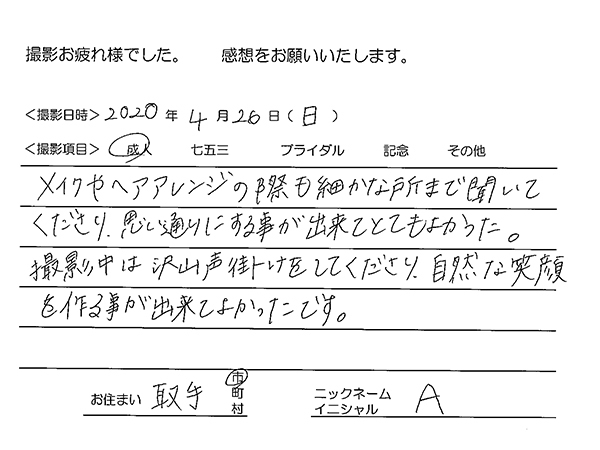 撮影お疲れ様でした。 感想をお願いいたします。
<撮影日時> 2020 年 4 月 26 日 (日)
<撮影項目> 成人 七五三 ブライダル 記念 その他
メイクやヘアアレンジの際も細かな所まで聞いて
くださり、思い通りにする事が出来てとてもよかった。
撮影中は沢山声掛けをしてくださり、自然な笑顔
を作る事が出来てよかったです。
お住まい 取手 市 町 村 ニックネーム イニシャル A